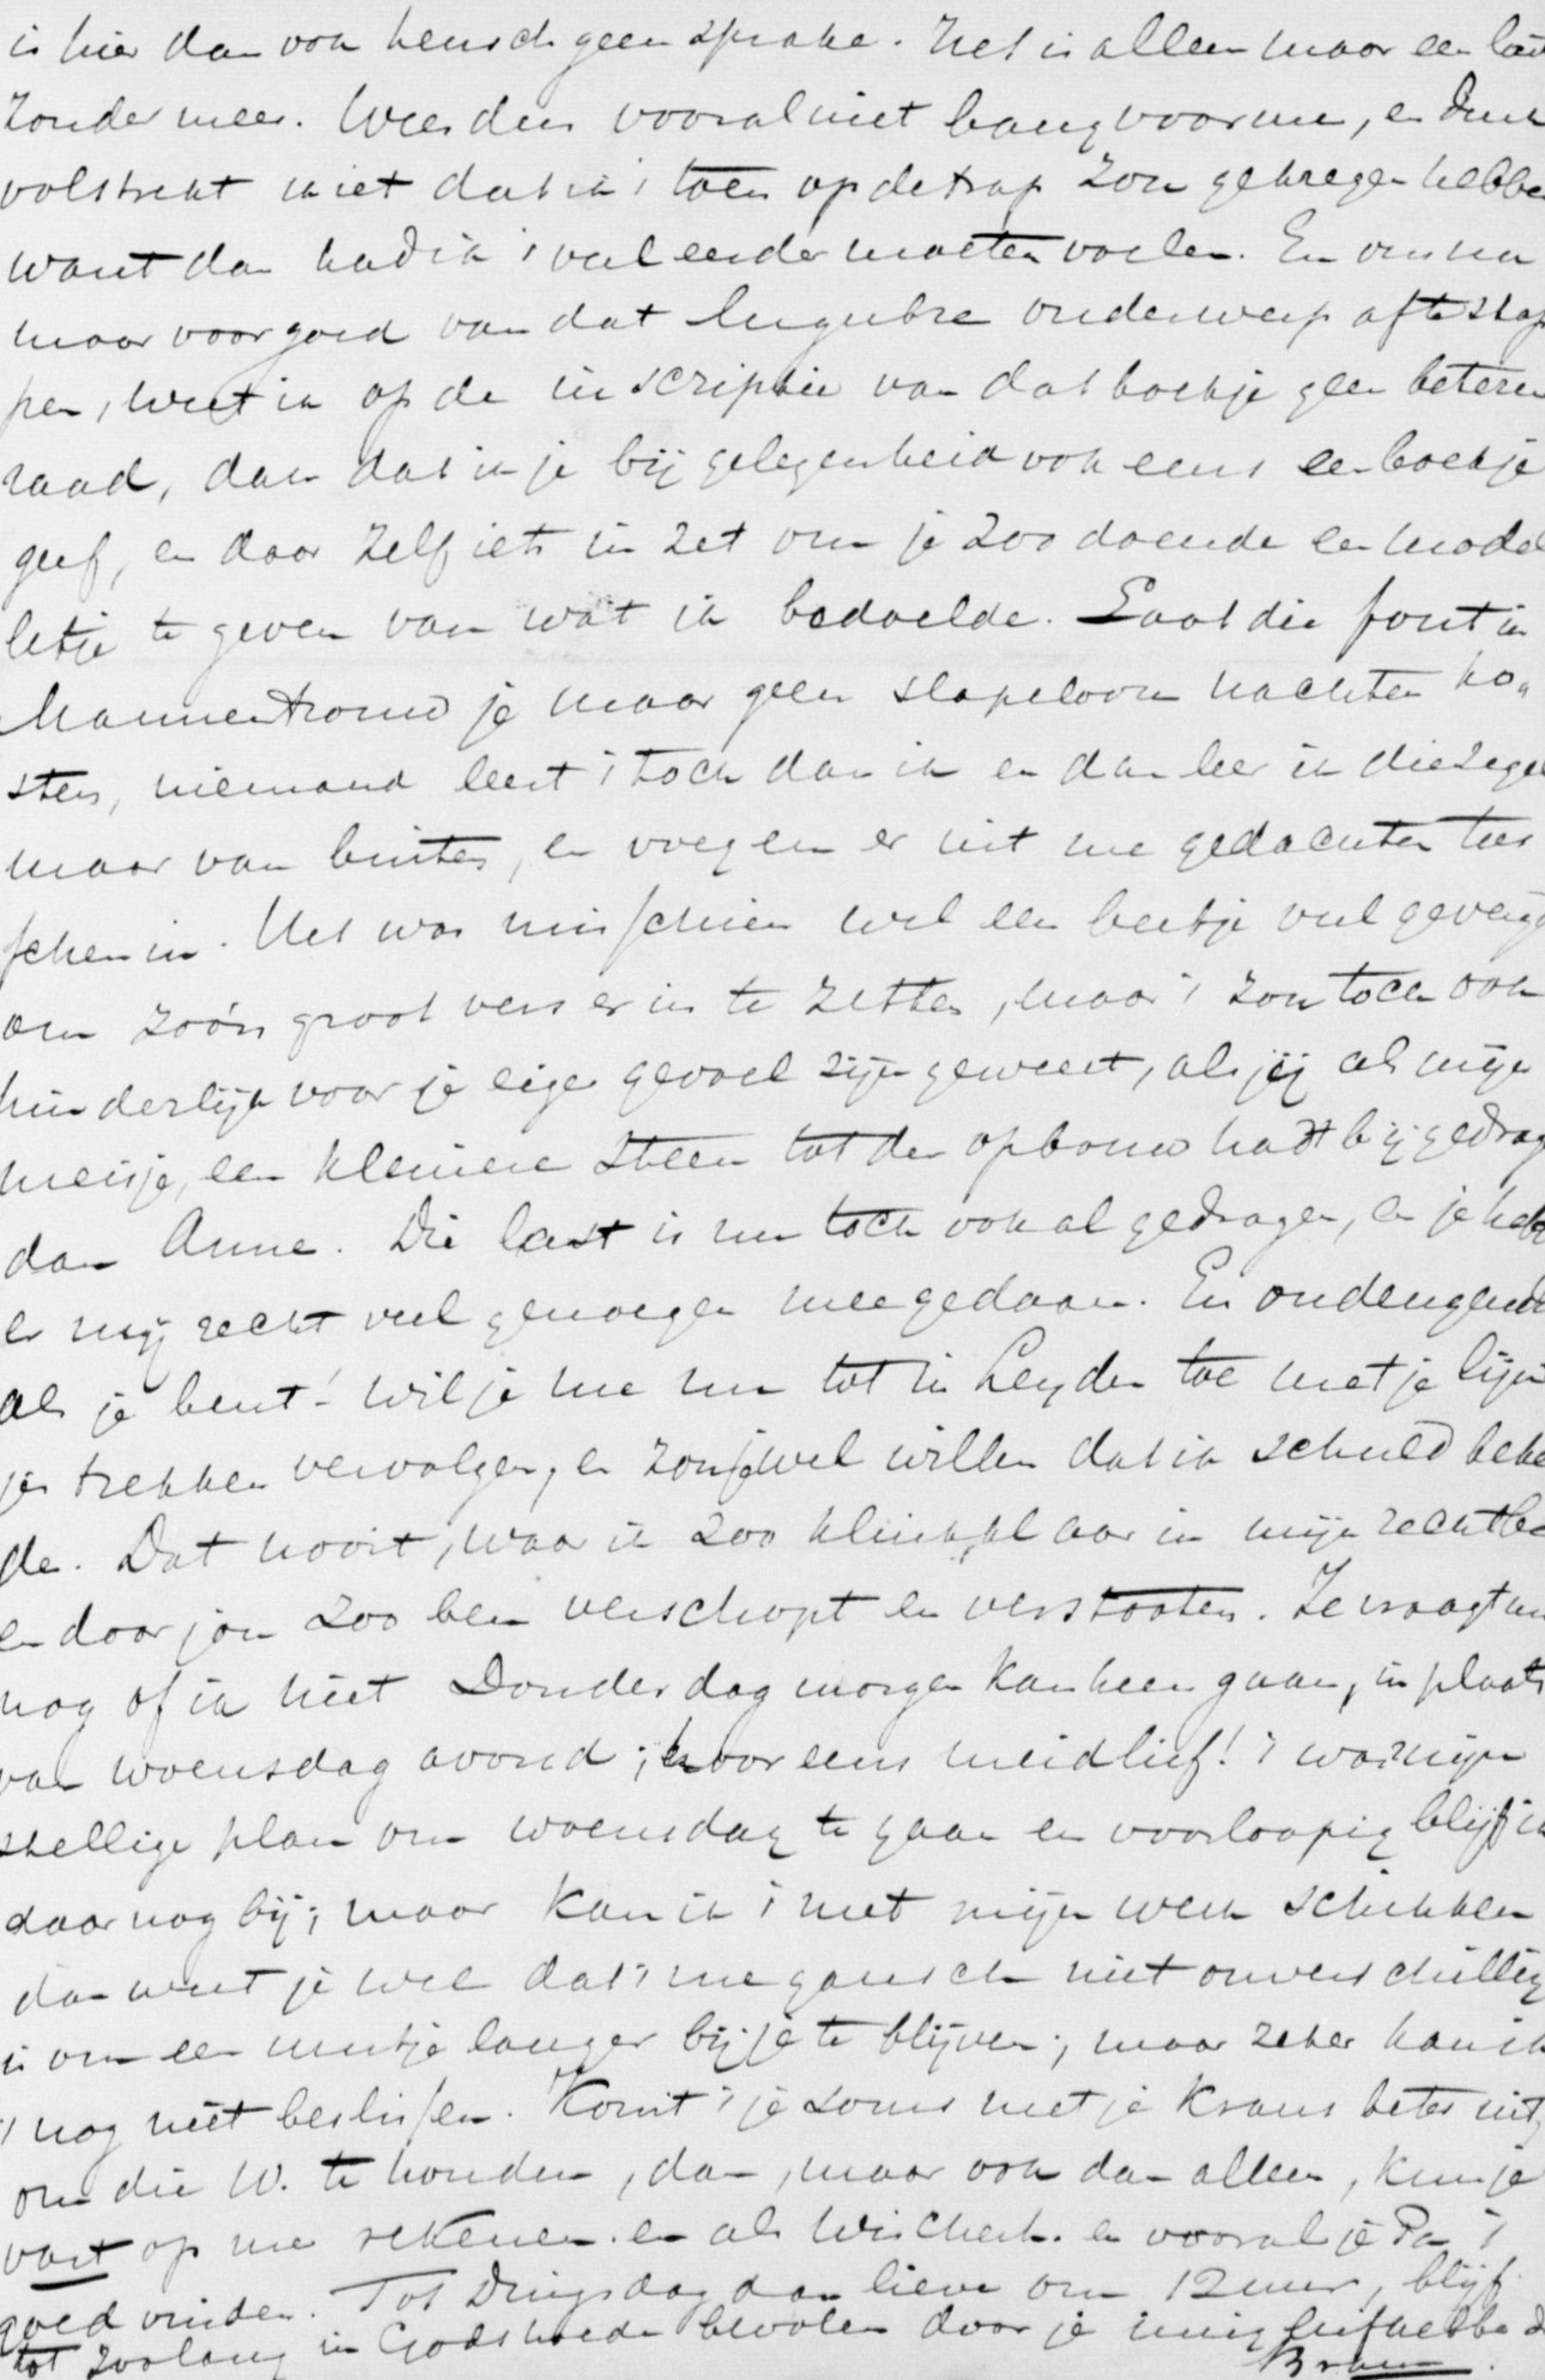 is hier dan ook heusch geen sprake. Het is alleen maar een
zonder meer. Wees dus vooral niet bang voor me, en denk
volstrekt niet dat ik 't toen op de trap zou gekregen hebben
want dan had ik 't veel eerder moeten voelen. En om nu
maar voor goed van dat lugubre onderwerp af te stap
pen, weet ik op de inscriptie van dat boekje geen beteren
raad, dan dat ik je bij gelegenheid ook eens een boekje
geef, en daar zelf iets in zet om je zoo doende een model
letje te geven van wat ik bedoelde. Laat die fout in
Mannentrouw je maar geen slapelooze nachten ko
sten, niemand leest 't toch dan ik en dan leer ik die regel
maar van buiten, en voegen er uit me gedachten tus
schen in. Het was misschien wel een beetje veel gevergd
om zóó'n groot vers er in te zetten, maar 't zou toch ook
hinderlijk voor je eigen gevoel zijn geweest, als jij als mijn
meisje, een kleinere steen tot den opbouw hadt bijgedrag
dan Anne. Die last is nu toch ook al gedragen, en je hebt
er mij recht veel genoegen mee gedaan. En ondeugend
als je bent! wil je me nu tot in Leyden toe met je lijn
jes trekken vervolgen, en zou je wel willen dat ik schuld beken
de. Dat nooit, waar ik zoo klinkklaar in mijn recht ben
en door jou zoo ben verschopt en verstooten. Je vraagt me
nog of ik niet Donderdag morgen kan heen gaan, in plaats
van woensdag avond; hoor eens meidlief! 't was mijn
stellige plan om woensdag te gaan en voorloopig blijf ik
daar nog bij; maar kan ik 't met mijn werk schikken
dan weet je wel dat 't me gansch niet onverschillig
is om een uurtje langer bij je te blijven; maar zeker kan ik
't nog niet beslissen. Komt 't je soms met je Krans beter uit,
om die W. te houden, dan, maar ook dan alleen, kun je
vast op me rekenen. en als Wischerh. en vooral je Pa 't
goed vinden. Tot Dingsdag dan lieve om 12 uur, blijf
tot zoolang in Gods hoede bevolen door je innig liefhebbend
Bram